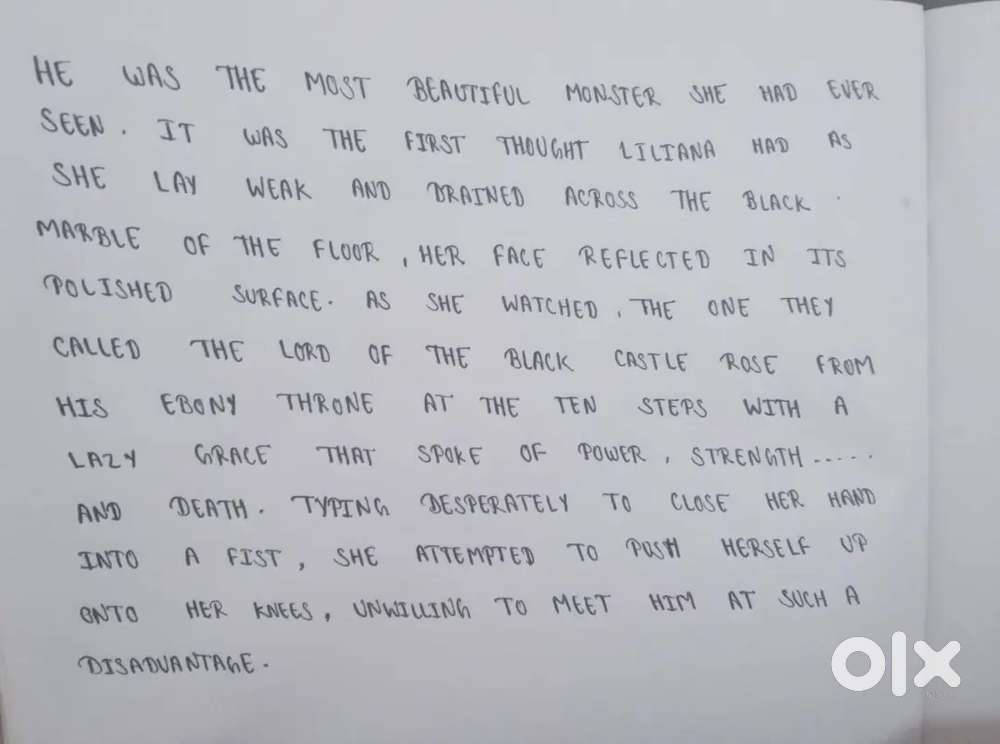 HE WAS THE MOST BEAUTIFUL MONSTER SHE HAD EVER
SEEN. IT WAS THE FIRST THOUGHT LILIANA HAD AS
SHE LAY WEAK AND DRAINED ACROSS THE BLACK
MARBLE OF THE FLOOR, HER FACE REFLECTED IN ITS
POLISHED SURFACE. AS SHE WATCHED, THE ONE THEY
CALLED THE LORD OF THE BLACK CASTLE ROSE FROM
HIS EBONY THRONE AT THE TEN STEPS WITH A
LAZY GRACE THAT SPOKE OF POWER, STRENGTH.....
AND DEATH. TYPING DESPERATELY TO CLOSE HER HAND
INTO A FIST, SHE ATTEMPTED TO PUSH HERSELF UP
ONTO HER KNEES, UNWILLING TO MEET HIM AT SUCH A
DISADVANTAGE.
olx